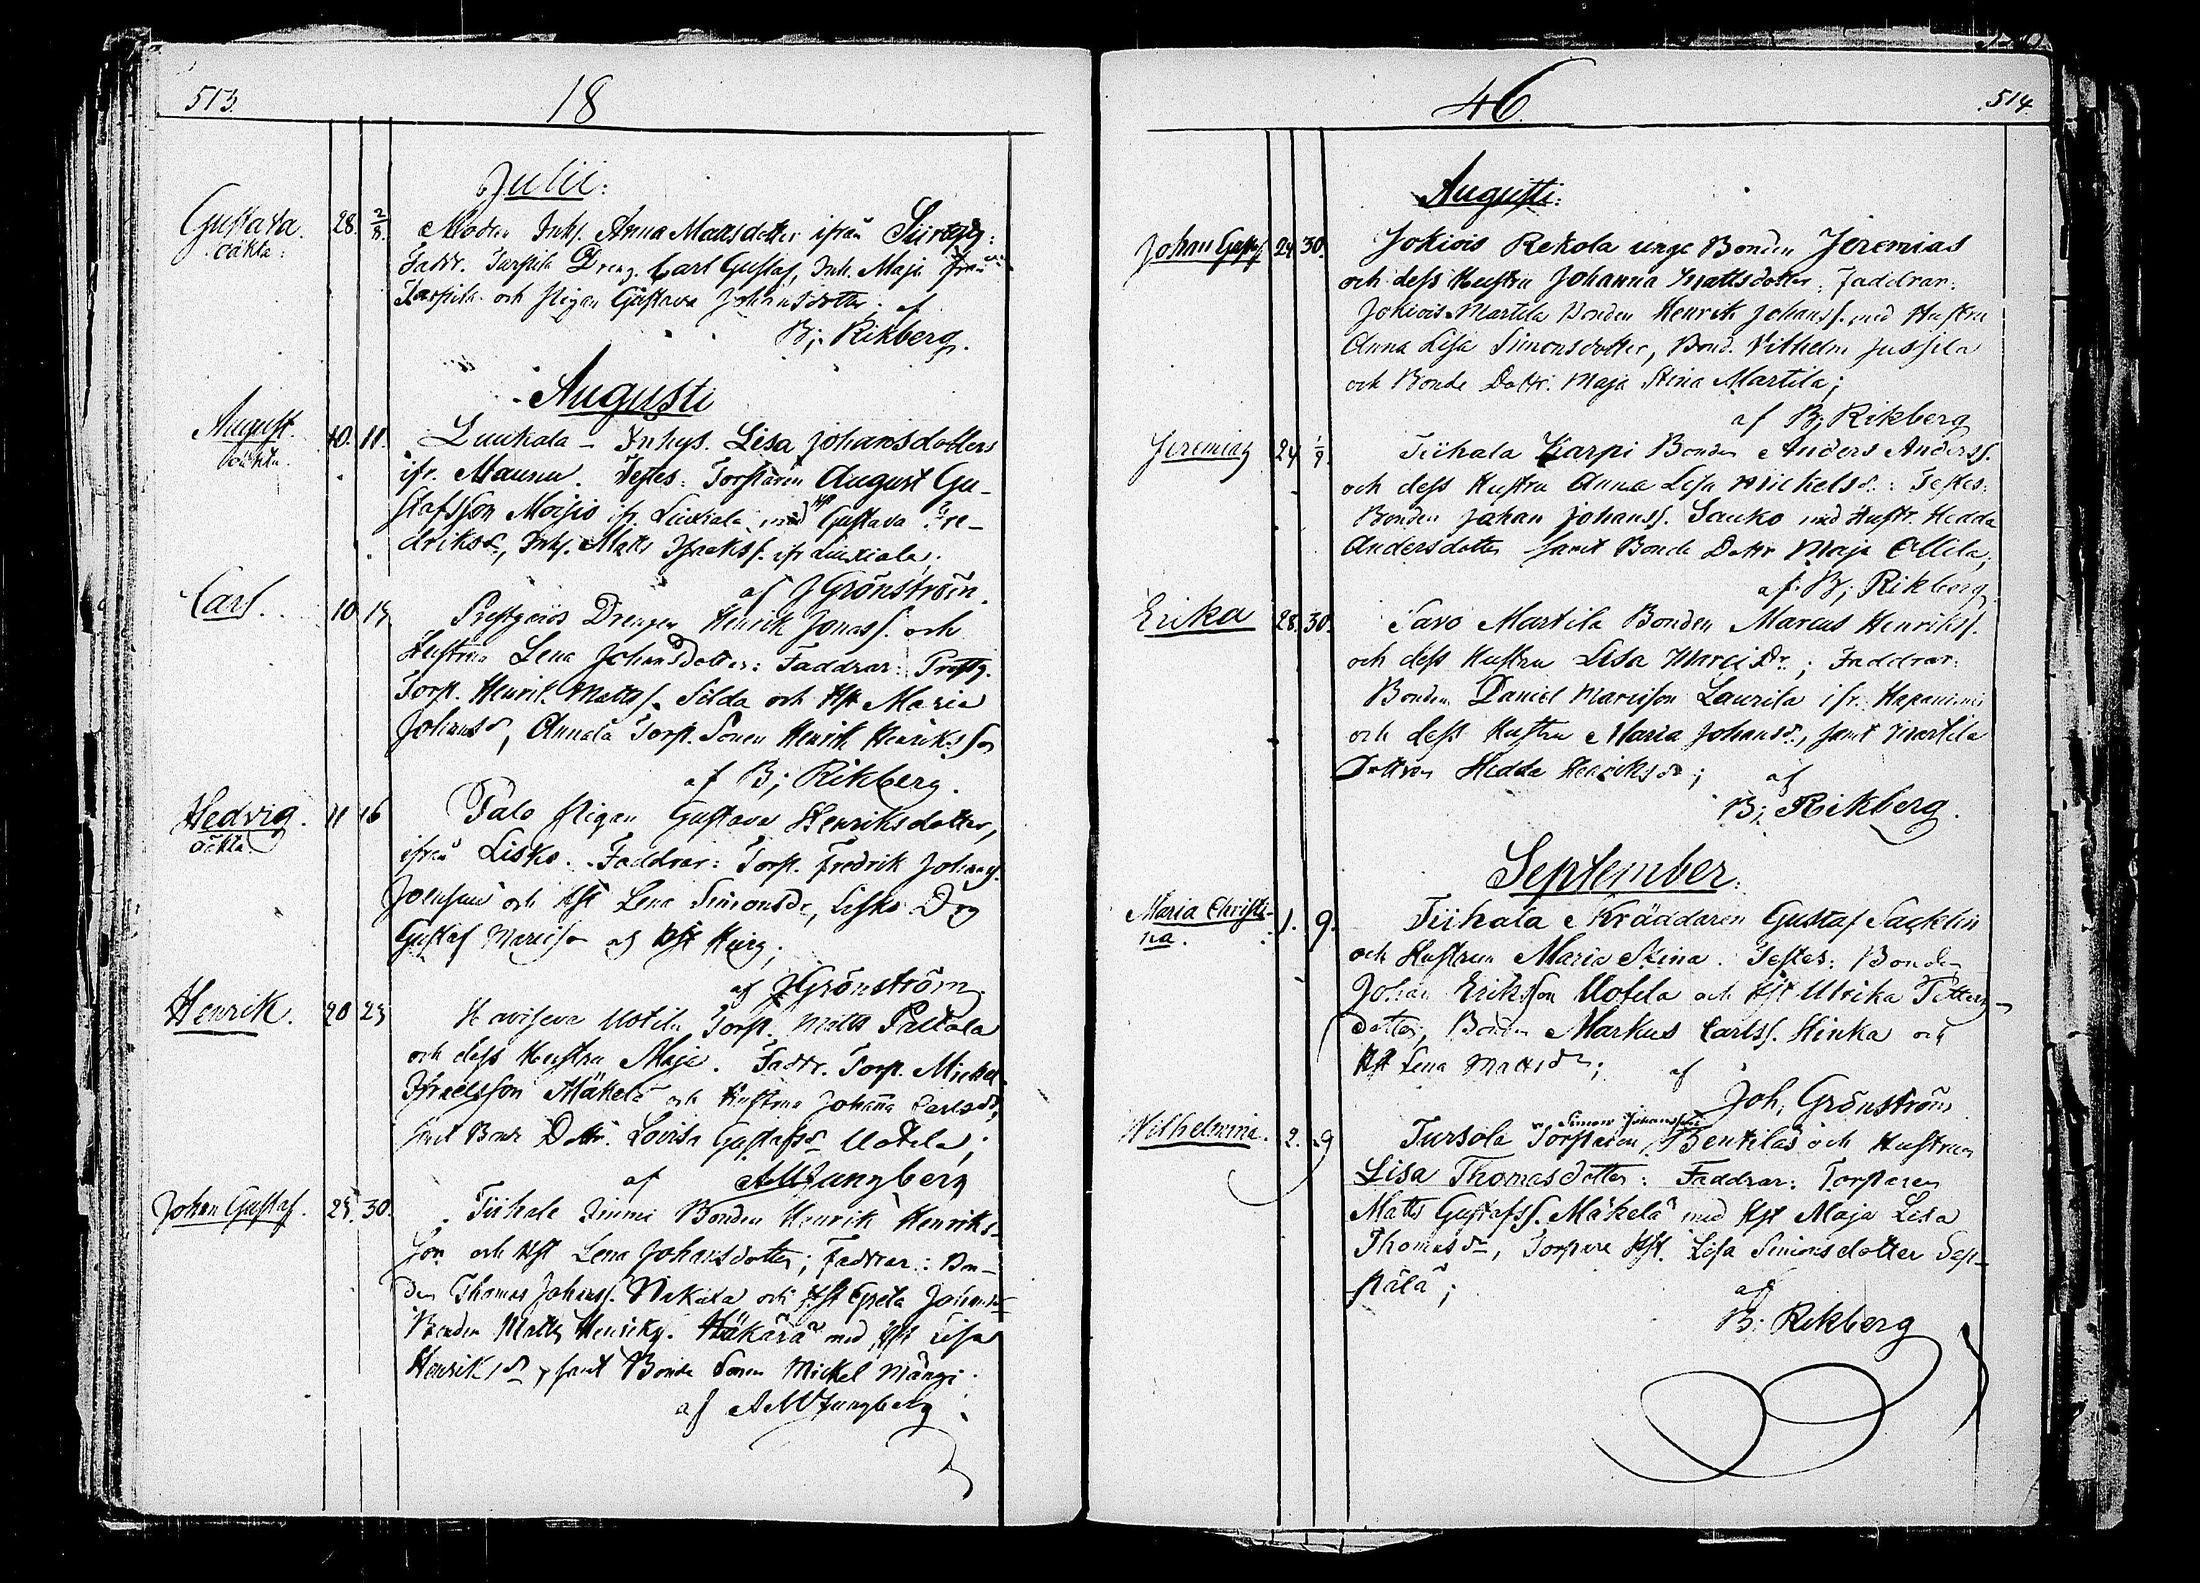 513.
18
Julii:
Gustava.
oäkta:
28. 2/8.
Modren Inhs. Anna Mattsdotter ifrån
Faddr. Turpila Dreng. Carl Gustaf, Inh. Maja
Tarpila och Pigan Gustava Johansdotter; af
B; Rikberg.
Augusti
August.
oäkta.
10. 11.
Liukala - Inhys. Lisa Johansdotters
ifr. Maunu. Testes: Torparen August Gu-
stafsson Moisio ifr. Liukiala, med Hst Gustava Fre-
driksdr, Inh. Matts Isaakss. ifr Liukiala;
af J Grönström.
Carl.
10. 15
Prestgårds Drengen Henrik Jonass. och
Hustrun Lena Johansdotter: Faddrar: Prestg.
Torp. Henrik Mattss. Silda och Hst Maria
Johansdr, Annala Torp. Sonen Henrik Henriksson
af B; Rikberg.
Hedvig.
oäkta
11 16
Palo Pigan Gustava Henriksdotter,
ifrån Lisko. Faddrar: Torp. Fredrik Johanss.
och Hst Lena Simonsdr, Lisko Drg
Gustaf Marcisson
af J Grönström.
Henrik.
20 23
Uotila Torp. Matts Pallola
och dess Hustru Maja. Faddr. Torp. Michel
Israelsson Mäkelä och Hustrun Johanna Carlsdr,
samt Bond Dottr. Lovisa Gustafsdr Uotila;
af AWLjungberg
Johan Gustaf.
25. 30.
Tiihala Simmi Bonden Henrik Henriks-
son och Hst Lena Johansdotter; Faddrar: Bon-
den Thomas Johanss. Nakula och Hst Greta Johansdr
Bonden Matts Henrikss. Häkärä med Hst Lisa
Henriksdr, samt Bonde Sonen Mickel Mängi.
af AWLjungberg
46.
514.
Augusti:
Johan Gustaf
24 30.
Jokiois Rekola unge Bonden Jeremias
och dess Hustru Johanna Mattsdotter, Faddrar:
Jokiois Martila Bonden Henrik Johanss. med Hustru
Anna Lisa Simonsdotter, Bond. Vilhelm Jussila
och Bonde Dottr. Maja Stina Martila;
af B; Rikberg
Jeremias
24 1/9.
Tiihala Karpi Bonden Anders Anderss.
och dess Hustru Anna Lisa Michelsdr: Testes:
Bonden Johan Johanss. Sauko med Hustr. Hedda
Andersdotter samt Bonde Dottr Maja Ollila;
af B; Rikberg
Erika
28. 30.
Savo Martila Bonden Marcus Henrikss.
och dess Hustru Lisa Marcidr.; Faddrar:
Bonden Daniel Marcisson Laurila ifr. Hapaniemi
och dess Hustru Maria Johansdr, samt Martila
Dottren Hedda Henriksdr; af
B; Rikberg.
September.
Maria Christi-
na.
1. 9.
Tiihala Skräddaren Gustaf Sacklin
och Hustrun Maria Stina. Testes: Bonden
Johan Eriksson Uotila och Hst Ulrika Petters-
dotter, Bonden Markus Carlss. Hinka och
Hst Lena Mattsdr;
af
Joh. Grönström
Wilhelmina.
2. 9
Simon Johansson
Tursola Torparen Bentiläs och Hustrun
Lisa Thomasdotter: Faddrar: Torparen
Matts Gustafss. Mäkelä med Hst Maja Lisa
Thomasdr, Torpare Hst. Lisa Simonsdotter Sep-
pälä;
af
B; Rikberg